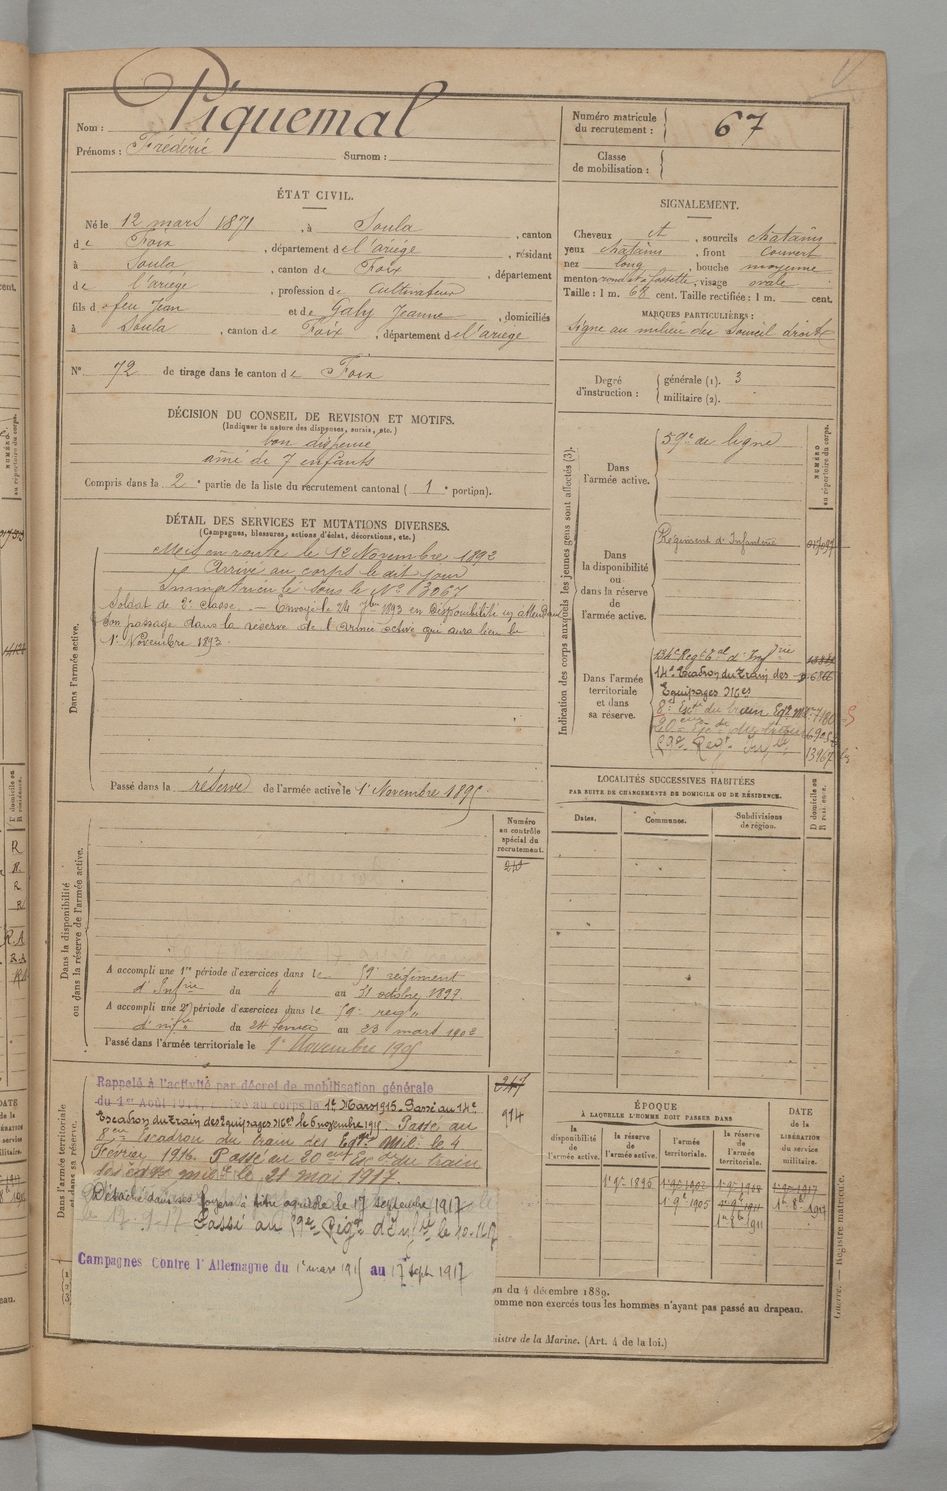 Nom : Piquemal
Prénoms : Frédéric Surnom :
Numéro matricule du recrutement : 67
Classe de mobilisation :
ÉTAT CIVIL.
Né le 12 mars 1871, à Soula, canton
de Foix, département de l'ariège, résidant
à Soula, canton de Foix, département
de l'ariège, profession de Cultivateur
fils de feu Jean et de Galy Jeanne, domiciliés
à Soula, canton de Foix, département de l'ariège
N° 72 de tirage dans le canton de Foix
SIGNALEMENT.
Cheveux et, sourcils chatains
yeux chatains, front couvert
nez long, bouche moyenne
menton rond et à fossette, visage ovale
Taille : 1 m. 68 cent. Taille rectifiée : 1 m. cent.
MARQUES PARTICULIÈRES :
Signe au milieu du Sourcil droit
Degré d'instruction : générale (1). 3
militaire (2).
DÉCISION DU CONSEIL DE REVISION ET MOTIFS.
(Indiquer la nature des dispenses, sursis, etc.)
bon dispensé
aîné de 7 enfants
Compris dans la 2e partie de la liste du recrutement cantonal (1e portion).
DÉTAIL DES SERVICES ET MUTATIONS DIVERSES.
(Campagnes, blessures, actions d'éclat, décorations, etc.)
Dans l'armée active.
Mis en route le 12 Novembre 1892
Arrivé au corps le dit jour
Immatriculé sous le N° 3067
Soldat de 2e classe. — Envoyé le 24 7bre 1893 en disponibilité en attendant
son passage dans la réserve de l'Armée active qui aura lieu le
1r Novembre 1893.
Passé dans la réserve de l'armée active le 1r Novembre 1895
Indication des corps auxquels les jeunes gens sont affectés (3).
NUMÉRO au répertoire du corps.
Dans l'armée active.
59e de ligne
Dans la disponibilité ou dans la réserve de l'armée active.
Régiment d'Infanterie
Dans l'armée territoriale et dans sa réserve.
134e Régt Tal d'Infrie
14e Escadron du Train des 6866
Equipages Mres
8e Esc. du train Eq. Mil.
59e Regt
LOCALITÉS SUCCESSIVES HABITÉES
PAR SUITE DE CHANGEMENTS DE DOMICILE OU DE RÉSIDENCE.
Dates. Communes. Subdivisions de région. D domicile ou R résidence.
Dans la disponibilité ou dans la réserve de l'armée active.
Numéro au contrôle spécial du recrutement.
A accompli une 1re période d'exercices dans le 59e régiment
d'Infrie du 4 au 31 octobre 1897
A accompli une 2e période d'exercices dans le 59e reg.
d'infie du 24 fevrier au 23 mars 1902
Passé dans l'armée territoriale le 1r Novembre 1905
Dans l'armée territoriale et dans sa réserve.
247
914
Rappelé à l'activité par décret de mobilisation générale
du 1er Août 1914, arrivé au corps le 1er Mars 1915. Passé au 14e
Escadron du Train des Equipages Mres le 6 novembre 1915. Passé au
8eme Escadron du train des Eqges Mil. le 4
Février 1916. Passé au 20eme Esc. du train
des éqges miles le 21 mai 1917.
Détaché dans ses foyers à titre agricole le 17 septembre 1917
le 17-9-17 Passé au 59e Régt d'Infie le 10-11-17
Campagnes Contre l'Allemagne du 1er mars 1915 au 17 Sept 1917
ÉPOQUE
À LAQUELLE L'HOMME DOIT PASSER DANS
la disponibilité de l'armée active. la réserve de l'armée active. l'armée territoriale. la réserve de l'armée territoriale.
DATE de la LIBÉRATION du service militaire.
1r 9e 1895
1r 9e 1905
1911
1917
on du 4 décembre 1889.
omme non exercés tous les hommes n'ayant pas passé au drapeau.
nistre de la Marine. (Art. 4 de la loi.)
Guerre. — Registre matricule.